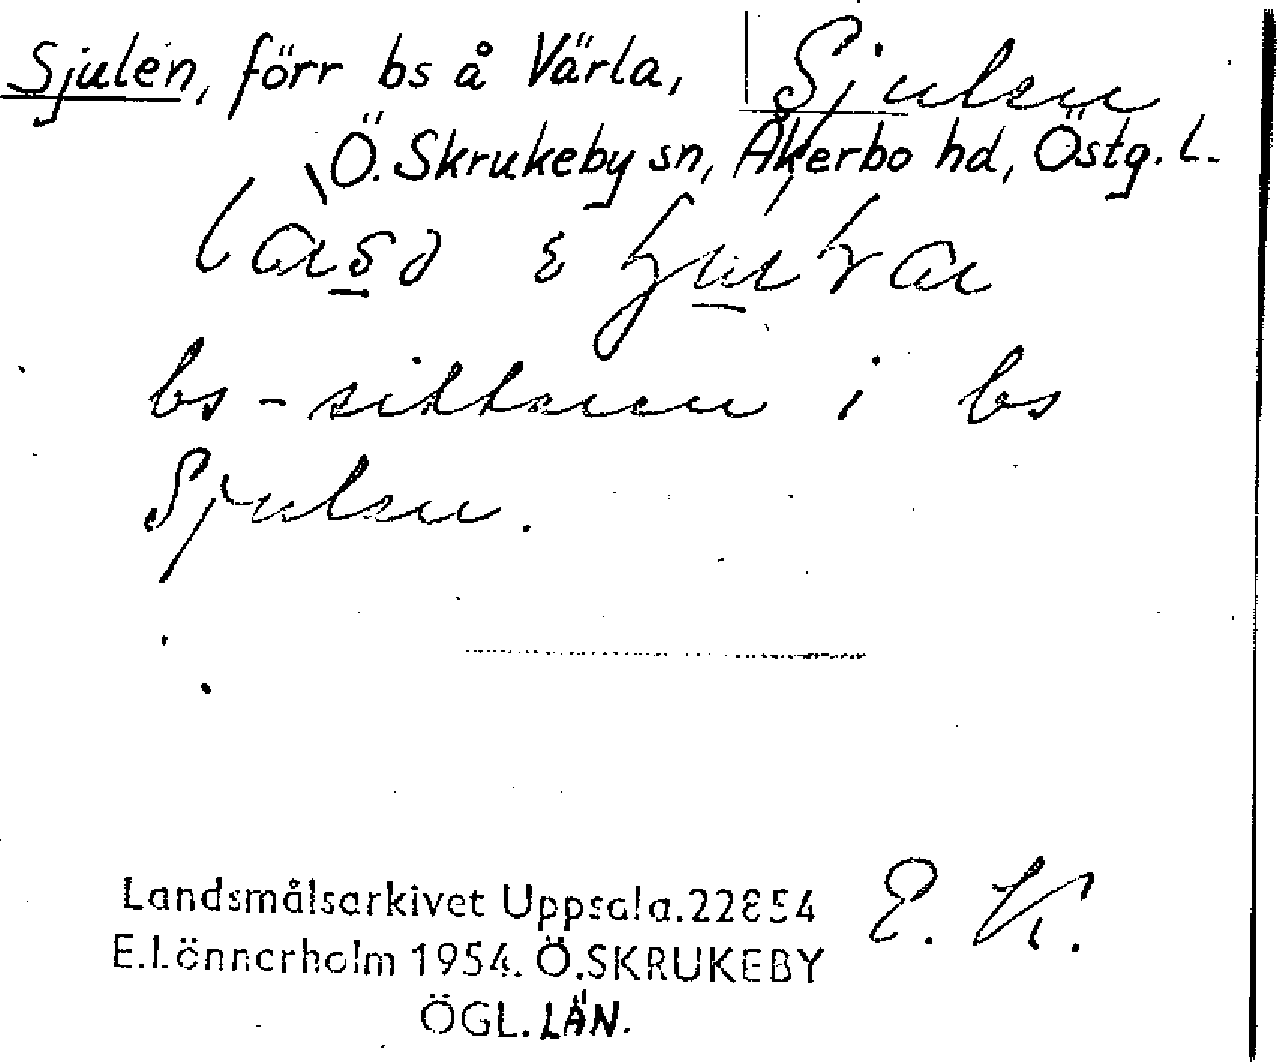 Sjulén, förr bs å Värla,
Sjulen
Ö. Skrukeby sn, Åkerbo hd, Östg. L.
bs-sittaren i bs
Sjulen.
Landsmålsarkivet Uppsala.22854
E.Lönnerholm 1954. Ö.SKRUKEBY
ÖGL. LÄN.
E. K.